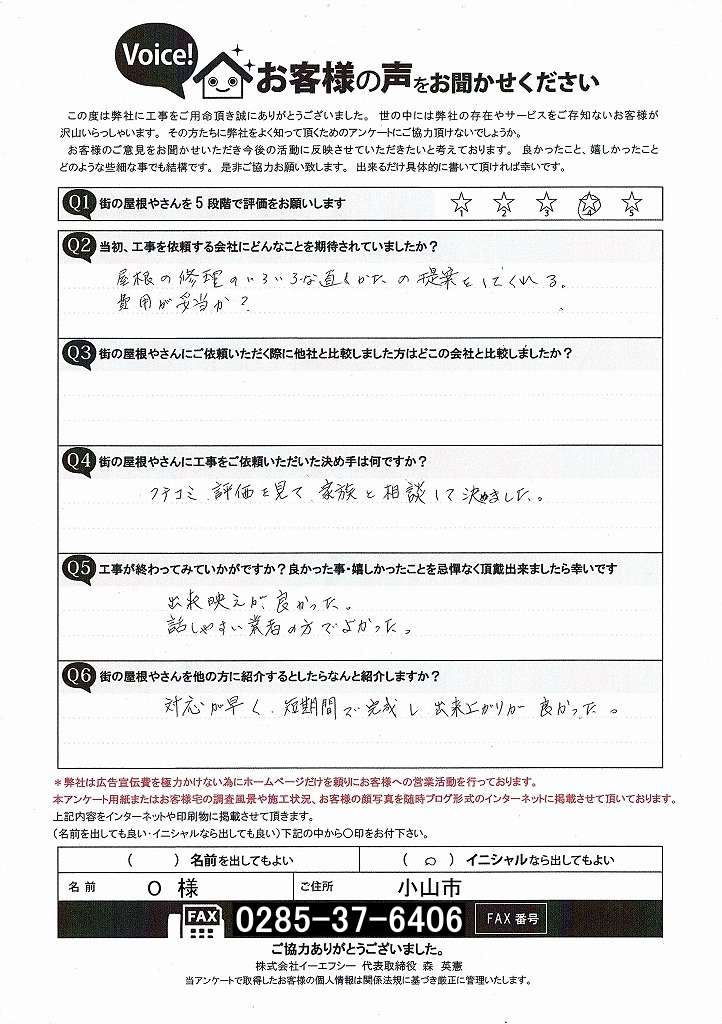 Voice!
お客様の声をお聞かせください
この度は弊社に工事をご用命頂き誠にありがとうございました。 世の中には弊社の存在やサービスをご存知ないお客様が
沢山いらっしゃいます。 その方たちに弊社をよく知って頂くためのアンケートにご協力頂けないでしょうか。
お客様のご意見をお聞かせいただき今後の活動に反映させていただきたいと考えております。 良かったこと、嬉しかったこと
どのような些細な事でも結構です。 是非ご協力お願い致します。 出来るだけ具体的に書いて頂ければ幸いです。
Q1 街の屋根やさんを5段階で評価をお願いします
1 2 3 4 5
Q2 当初、工事を依頼する会社にどんなことを期待されていましたか？
屋根の修理のいろいろな直しかたの提案をしてくれる。
費用が妥当か？
Q3 街の屋根やさんにご依頼いただく際に他社と比較しました方はどこの会社と比較しましたか？
Q4 街の屋根やさんに工事をご依頼いただいた決め手は何ですか？
クチコミ、評価を見て、家族と相談して決めました。
Q5 工事が終わってみていかがですか？良かった事・嬉しかったことを忌憚なく頂戴出来ましたら幸いです
出来映えが、良かった。
話しやすい業者の方でよかった。
Q6 街の屋根やさんを他の方に紹介するとしたらなんと紹介しますか？
対応が早く、短期間で完成し、出来上がりが良かった。
＊弊社は広告宣伝費を極力かけない為にホームページだけを頼りにお客様への営業活動を行っております。
本アンケート用紙またはお客様宅の調査風景や施工状況、お客様の顔写真を随時ブログ形式のインターネットに掲載させて頂いております。
上記内容をインターネットや印刷物に掲載させて頂きます。
（名前を出しても良い・イニシャルなら出しても良い）下記の中から〇印をお付下さい。
（　）名前を出してもよい （○）イニシャルなら出してもよい
名前 O 様 ご住所 小山市
FAX 0285-37-6406 FAX 番号
ご協力ありがとうございました。
株式会社イーエフシー 代表取締役 森 英憲
当アンケートで取得したお客様の個人情報は関係法規に基づき厳正に管理いたします。